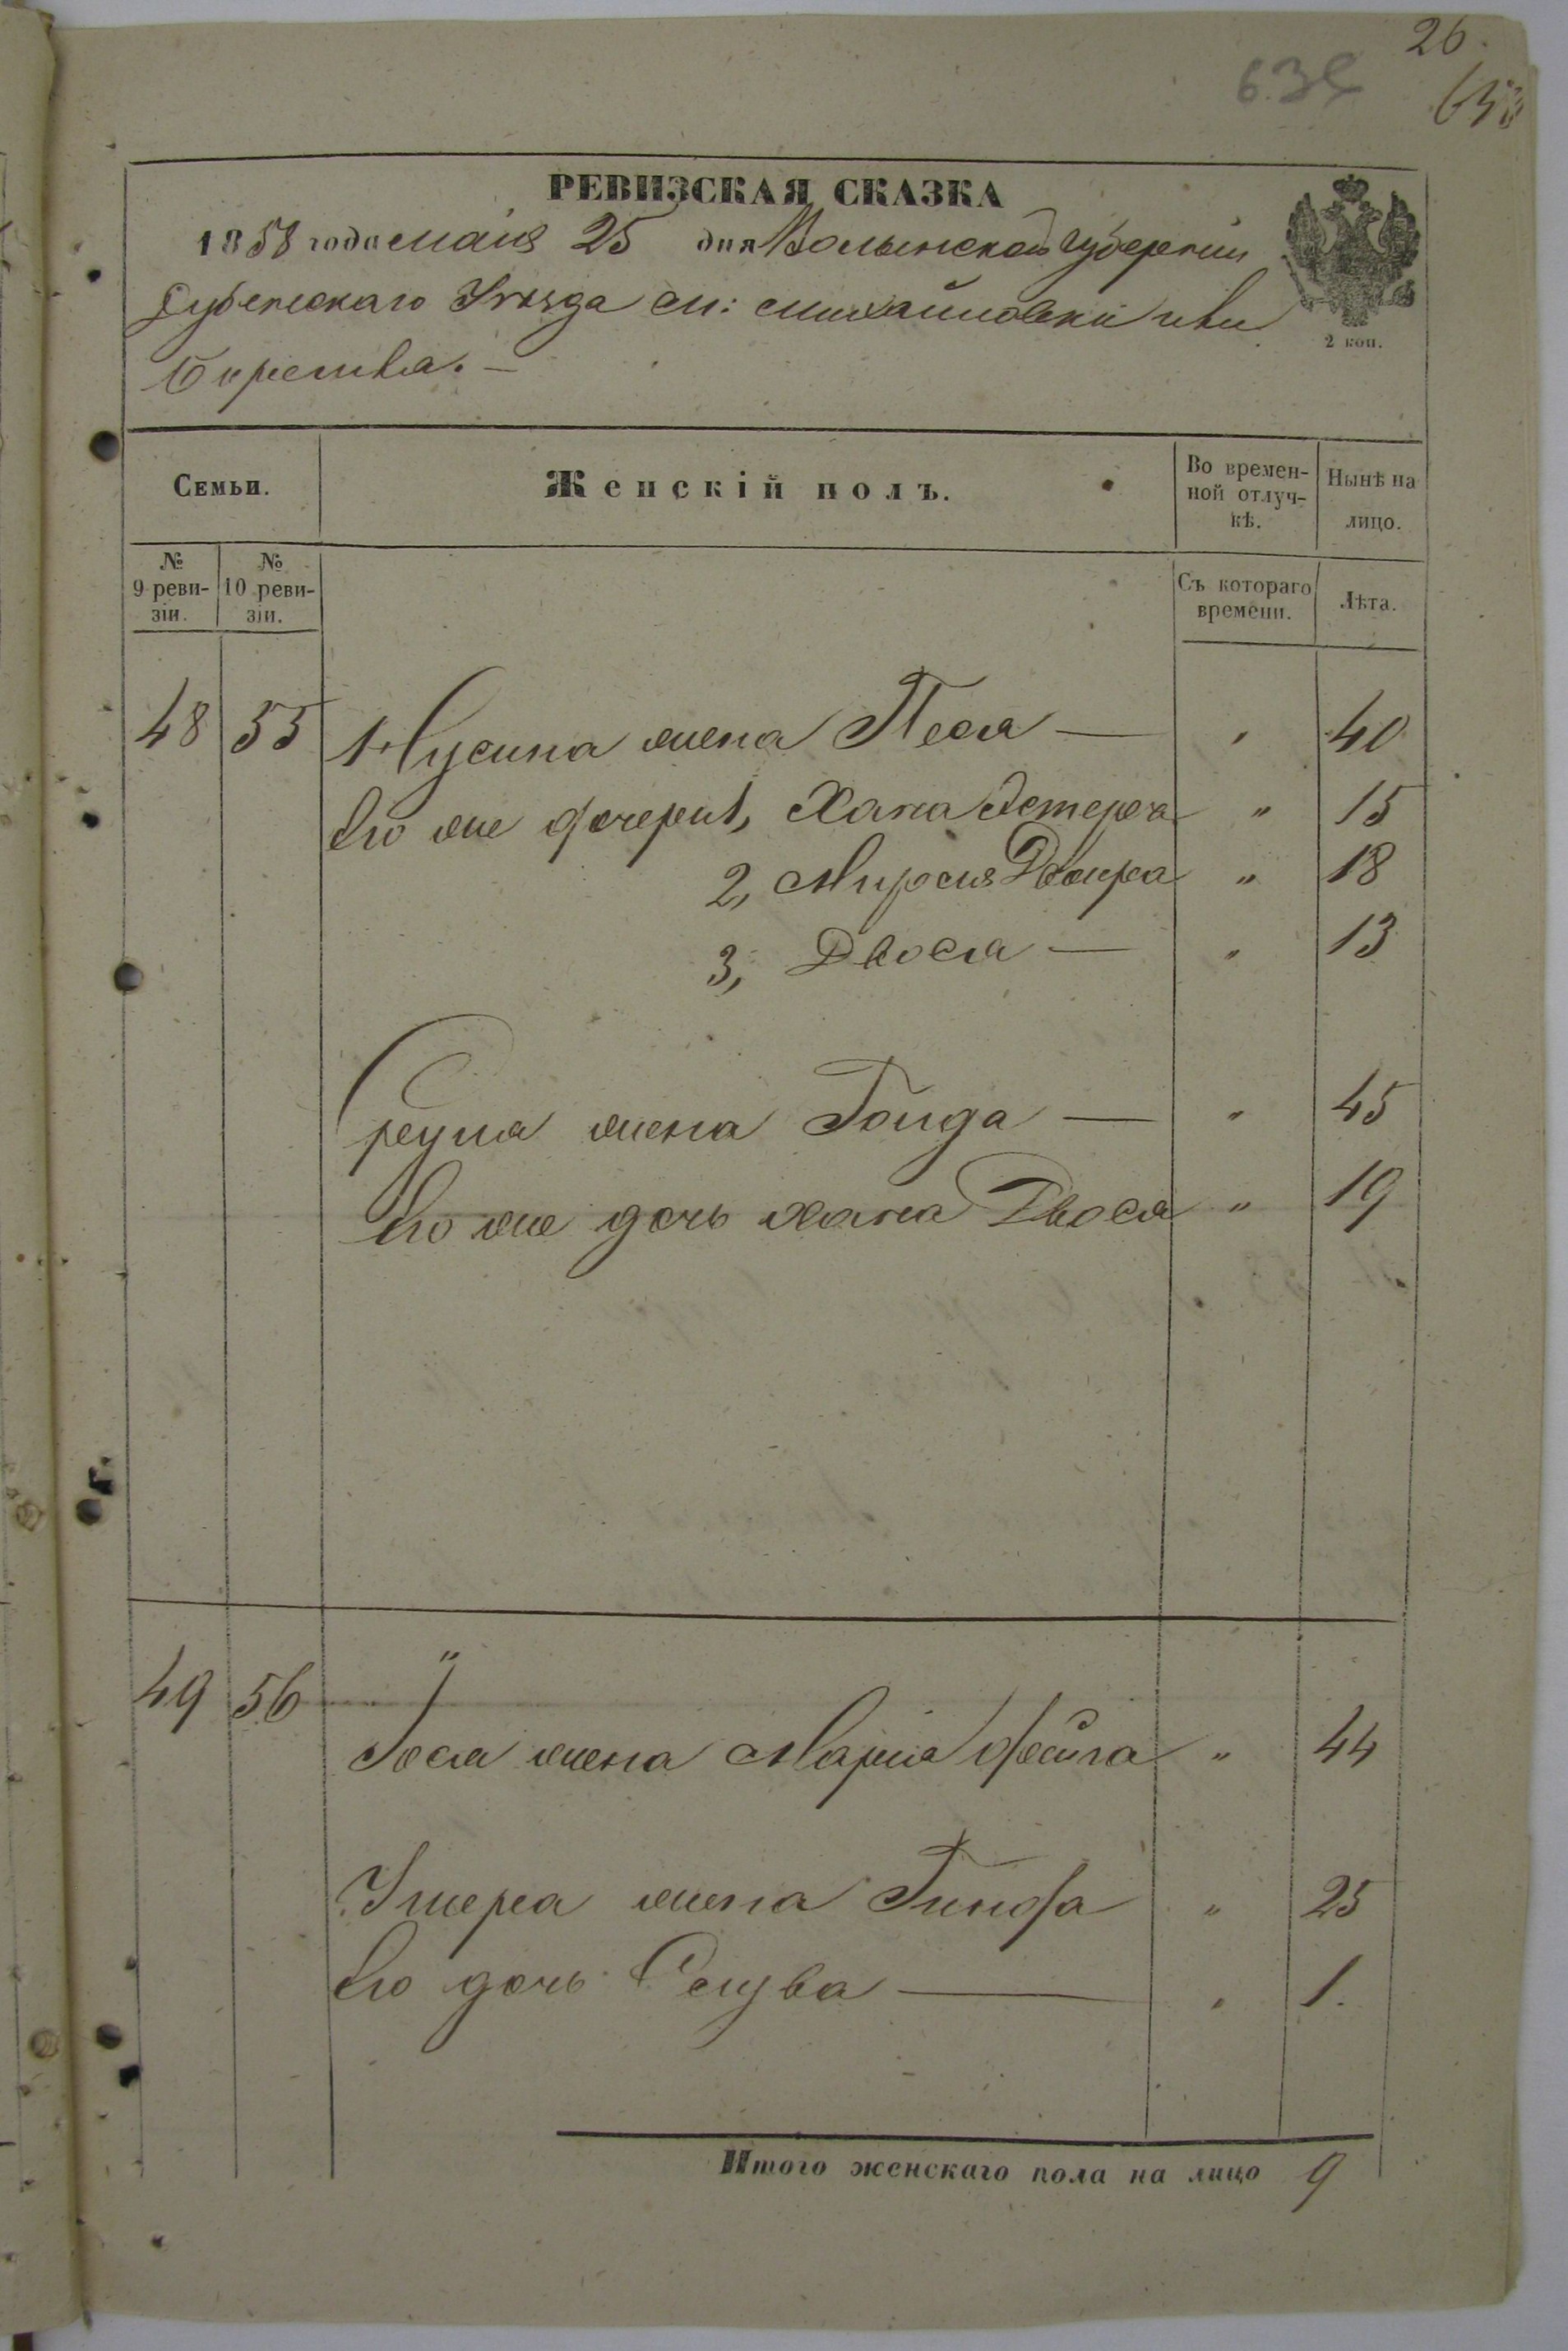 26.
638
РЕВИЗСКАЯ СКАЗКА
1858 года маія 25 дня Волынской Губерніи
Дубенскаго Уѣзда м: Михайловки или
Берества.
2 коп.
Семьи. Женскій полъ. Во времен-ной отлуч-кѣ. Нынѣ на лицо.
№ 9 реви-зіи. № 10 реви-зіи. Съ котораго времени. Лѣта.
48 55 Нусина жена Песя — " 40
Его же дочери 1, Хана Эстера " 15
2, Мирося Двойра " 18
3, Двося — " 13
жена Голда — " 45
Его же дочь Хана Двося " 19
49 56 "
Іося жена Марія Фейга " 44
Ушера жена Гинда " 25
Его дочь — " 1.
Итого женскаго пола на лицо 9